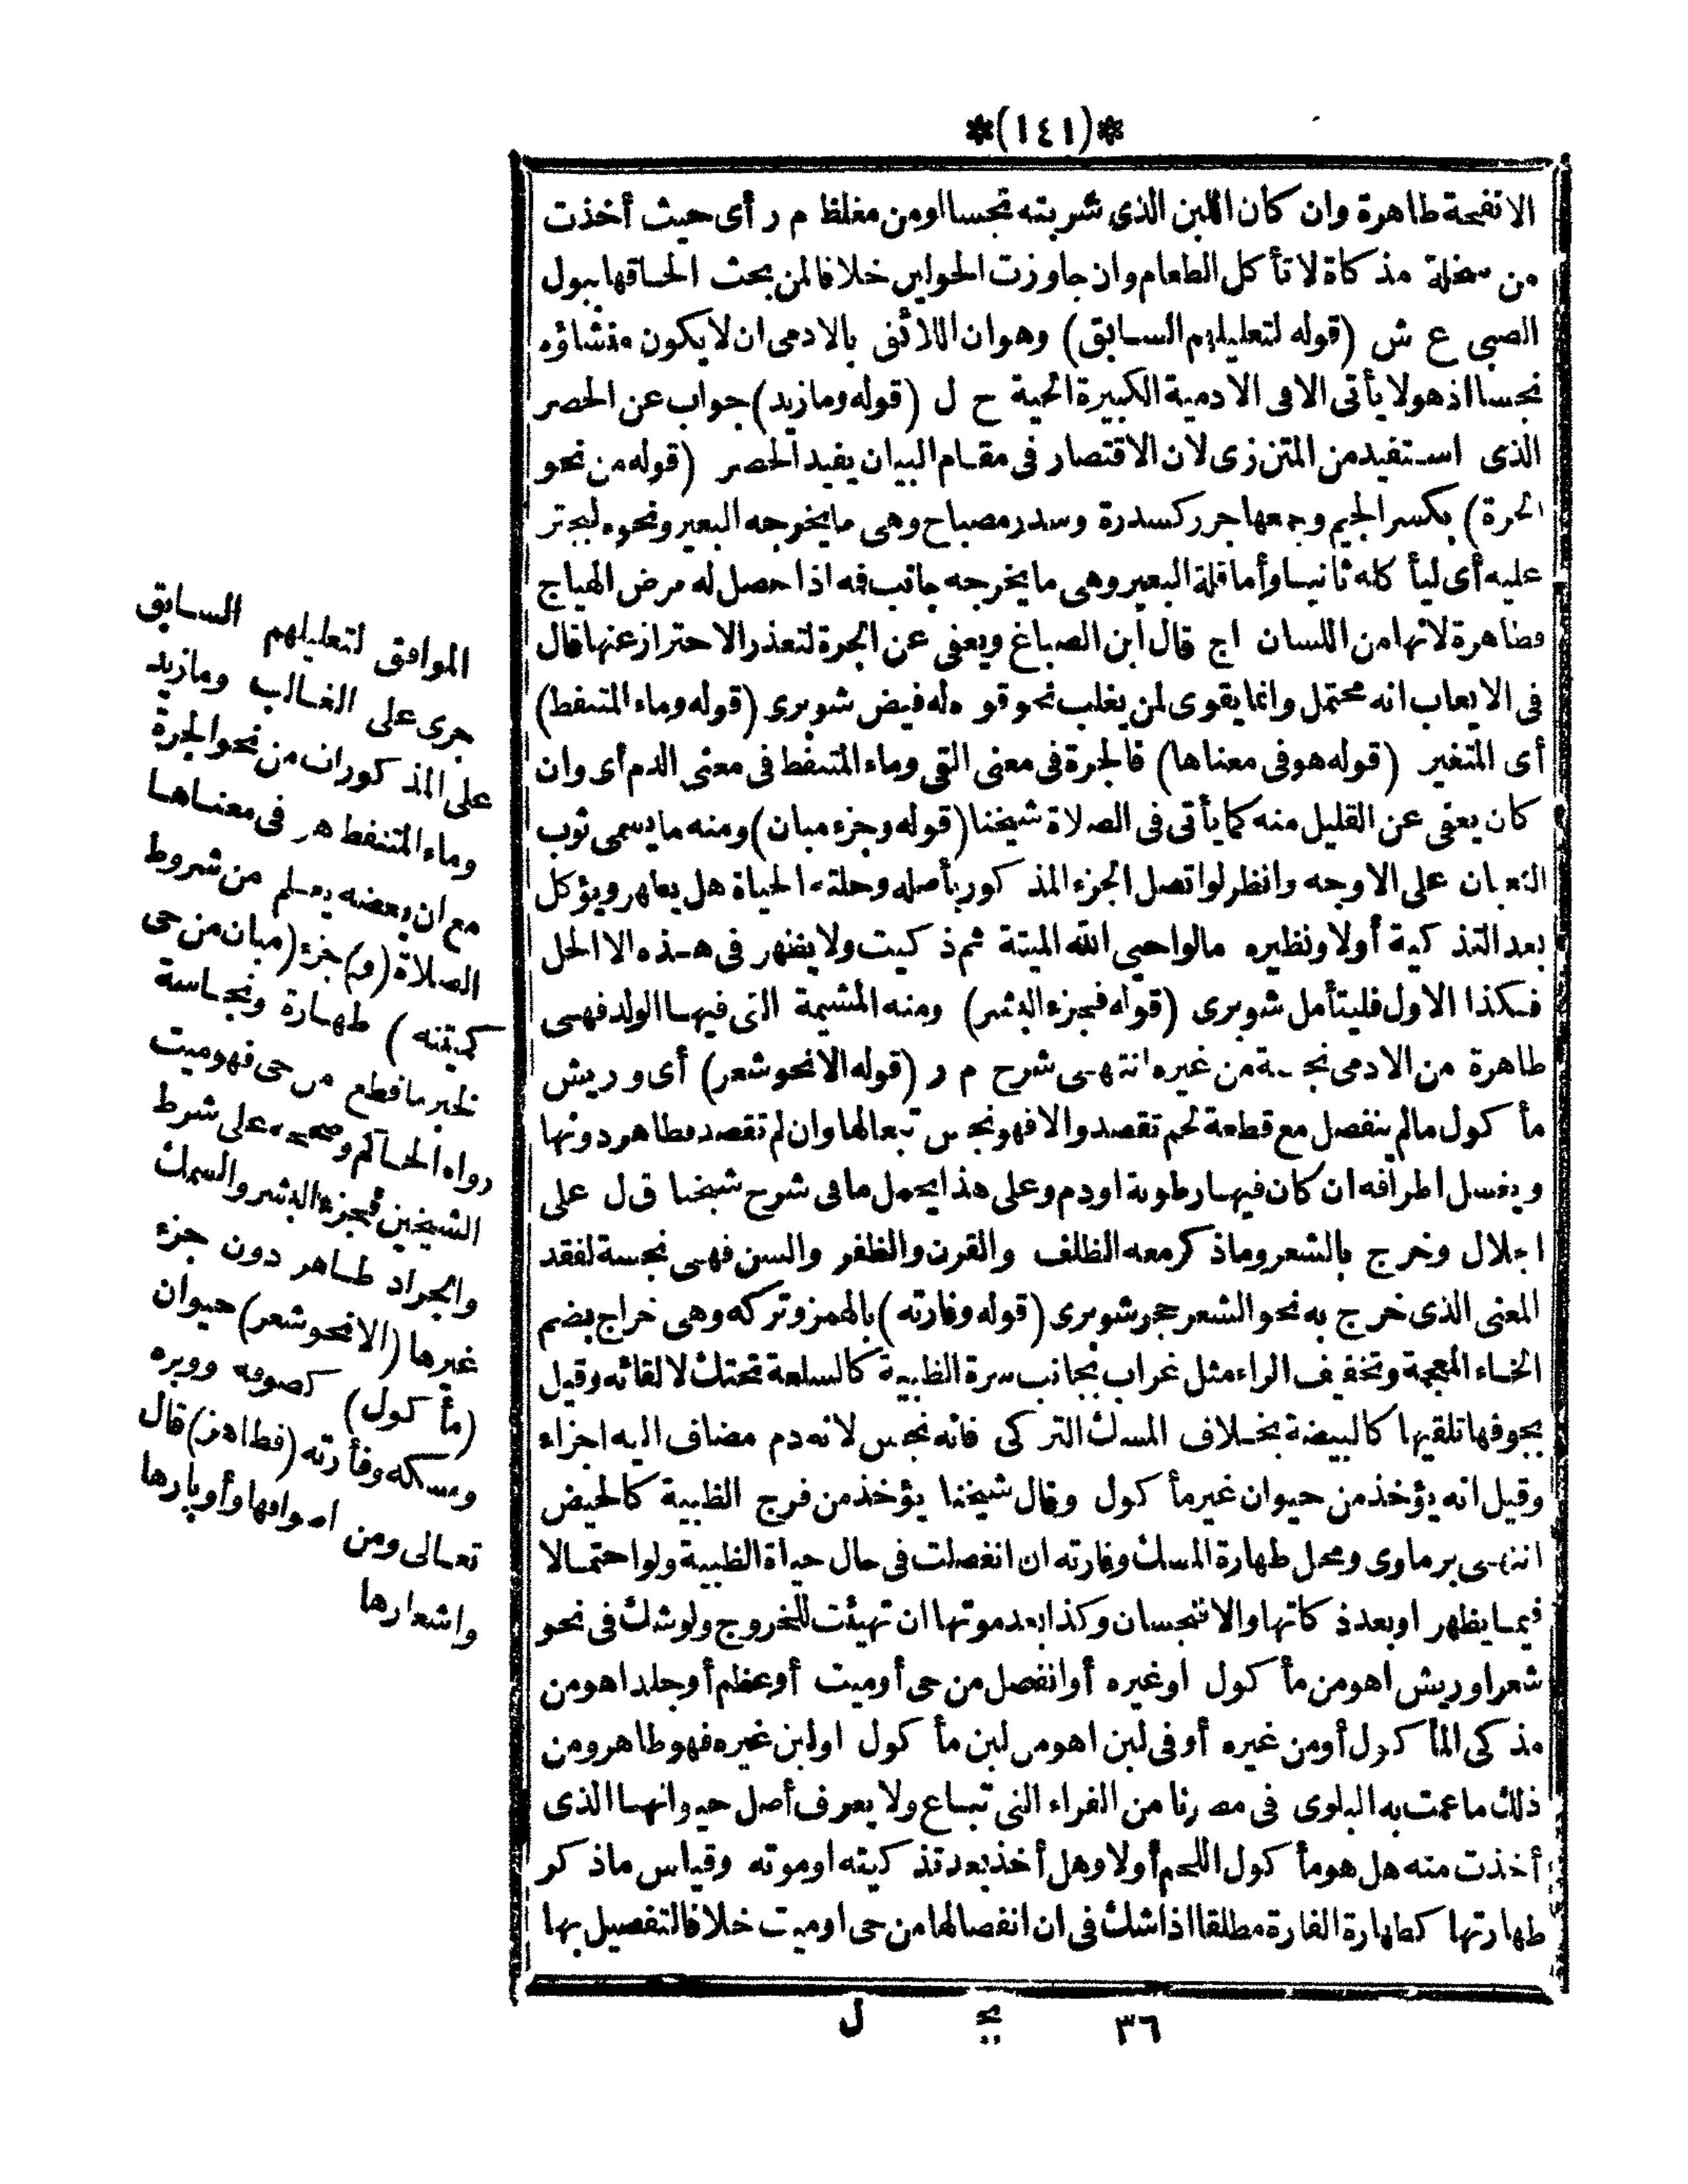 *(١٤١)*
الانفحة طاهرة وان كان اللبن الذى شربته نجسا او من مغلظ م ر أى حيث أخذت
من سخلة مذكاة لا تأكل الطعام وان جاوزت الحولين خلافا لمن بحث الحاقها ببول
الصبى ع ش (قوله لتعليلهم السابق) وهو ان اللائق بالادمى ان لا يكون منشاؤه
نجسا اذ هو لا يأتى الا فى الادمية الكبيرة الحية ح ل (قوله وما زيد) جواب عن الحصر
الذى استفيد من المتن زى لان الاقتصار فى مقام البيان يفيد الحصر (قوله من نحو
الجرة) بكسر الجيم وجمعها جرر كسدرة وسدر مصباح وهى ما يخرجه البعير ونحوه ليجتر
عليه أى ليأكله ثانيا وأما قلة البعير وهى ما يخرجه جانب فه اذا حصل له مرض الهياج
فطاهرة لانها من اللسان اج قال ابن الصباغ ويعفى عن الجرة لتعذر الاحتراز عنها قال
فى الايعاب انه محتمل وانما يقوى لمن يغلب نحو قوده له فيض شوبرى (قوله وماء المتنفط)
أى المتغير (قوله هو فى معناها) فالجرة فى معنى القى وماء المتنفط فى معنى الدم أى وان
كان يعفى عن القليل منه كما يأتى فى الصلاة شيخنا (قوله وجزء مبان) ومنه ما يسمى ثوب
الثعبان على الاوجه وانظر لو اتصل الجزء المذكور بأصله وحلته الحياة هل يطهر ويؤكل
بعد التذكية أولا ونظيره ما لو احيى الله الميتة ثم ذكيت ولا يظهر فى هذه الا الحل
فكذا الاول فليتأمل شوبرى (قوله فجزء البشر) ومنه المشيمة التى فيها الولد فهى
طاهرة من الادمى نجسة من غيره انتهى شرح م ر (قوله الا نحو شعر) أى وريش
مأكول ما لم ينفصل مع قطعة لحم تقصد والا فهو نجس تبعا لها وان لم تقصد فطاهر دونها
ويغسل اطرافه ان كان فيها رطوبة او دم وعلى هذا يحمل ما فى شرح شيخنا ق ل على
الجلال وخرج بالشعر وما ذكر معه الظلف والقرن والظفر والسن فهى نجسة لفقد
المعنى الذى خرج به نحو الشعر حجر شوبرى (قوله وفارته) بالهمز وتركه وهى خراج بضم
الخاء المعجمة وتخفيف الراء مثل غراب بجانب سرة الظبية كالسلعة تحتك لالقائه وقيل
بجوفها تلقيها كالبيضة بخلاف المسك التركى فانه نجس لانه دم مضاف اليه اجزاء
وقيل انه يؤخذ من حيوان غير مأكول وقال شيخنا يؤخذ من فرج الظبية كالحيض
انتهى برماوى ومحل طهارة المسك وفارته ان انفصلت فى حال حياة الظبية ولو احتمالا
فيما يظهر او بعد ذكاتها والا فنجسان وكذا بعد موتها ان تهيئت للخروج ولو شك فى نحو
شعر او ريش اهو من مأكول او غيره أو انفصل من حى أو ميت أو عظم أو جلد اهو من
مذكى المأكول أو من غيره أو فى لبن اهو من لبن مأكول او لبن غيره فهو طاهر ومن
ذلك ما عمت به البلوى فى مصرنا من الفراء التى تباع ولا يعرف أصل حيوانها الذى
أخذت منه هل هو مأكول اللحم أولا وهل أخذ بعد تذكيته او موته وقياس ما ذكر
طهارتها كطهارة الفارة مطلقا اذا شك فى ان انفصالها من حى او ميت خلافا لتفصيل بها
الموافق لتعليلهم السابق
جرى على الغالب وما زيد
على المذكورات من نحو الجرة
وماء المتنفط هو فى معناها
مع ان بعضه يعلم من شروط
الصلاة (و) جزء (مبان من حى
كميتته) طهارة ونجاسة
لخبر ما قطع من حى فهو ميت
رواه الحاكم وصححه على شرط
الشيخين فجزء البشر والسمك
والجراد طاهر دون جزء
غيرها (الا نحو شعر) حيوان
(مأكول) كصوفه ووبره
ومسكه وفأرته (فطاهر) قال
تعالى ومن اصوافها وأوبارها
واشعارها
٣٦ يج ل